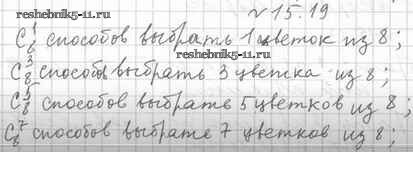 reshebnik5-11.ru № 15.19
C₈¹ способов выбрать 1 цветок из 8;
C₈³ способов выбрать 3 цветка из 8;
C₈⁵ способов выбрать 5 цветков из 8;
C₈⁷ способов выбрать 7 цветков из 8;
reshebnik5-11.ru